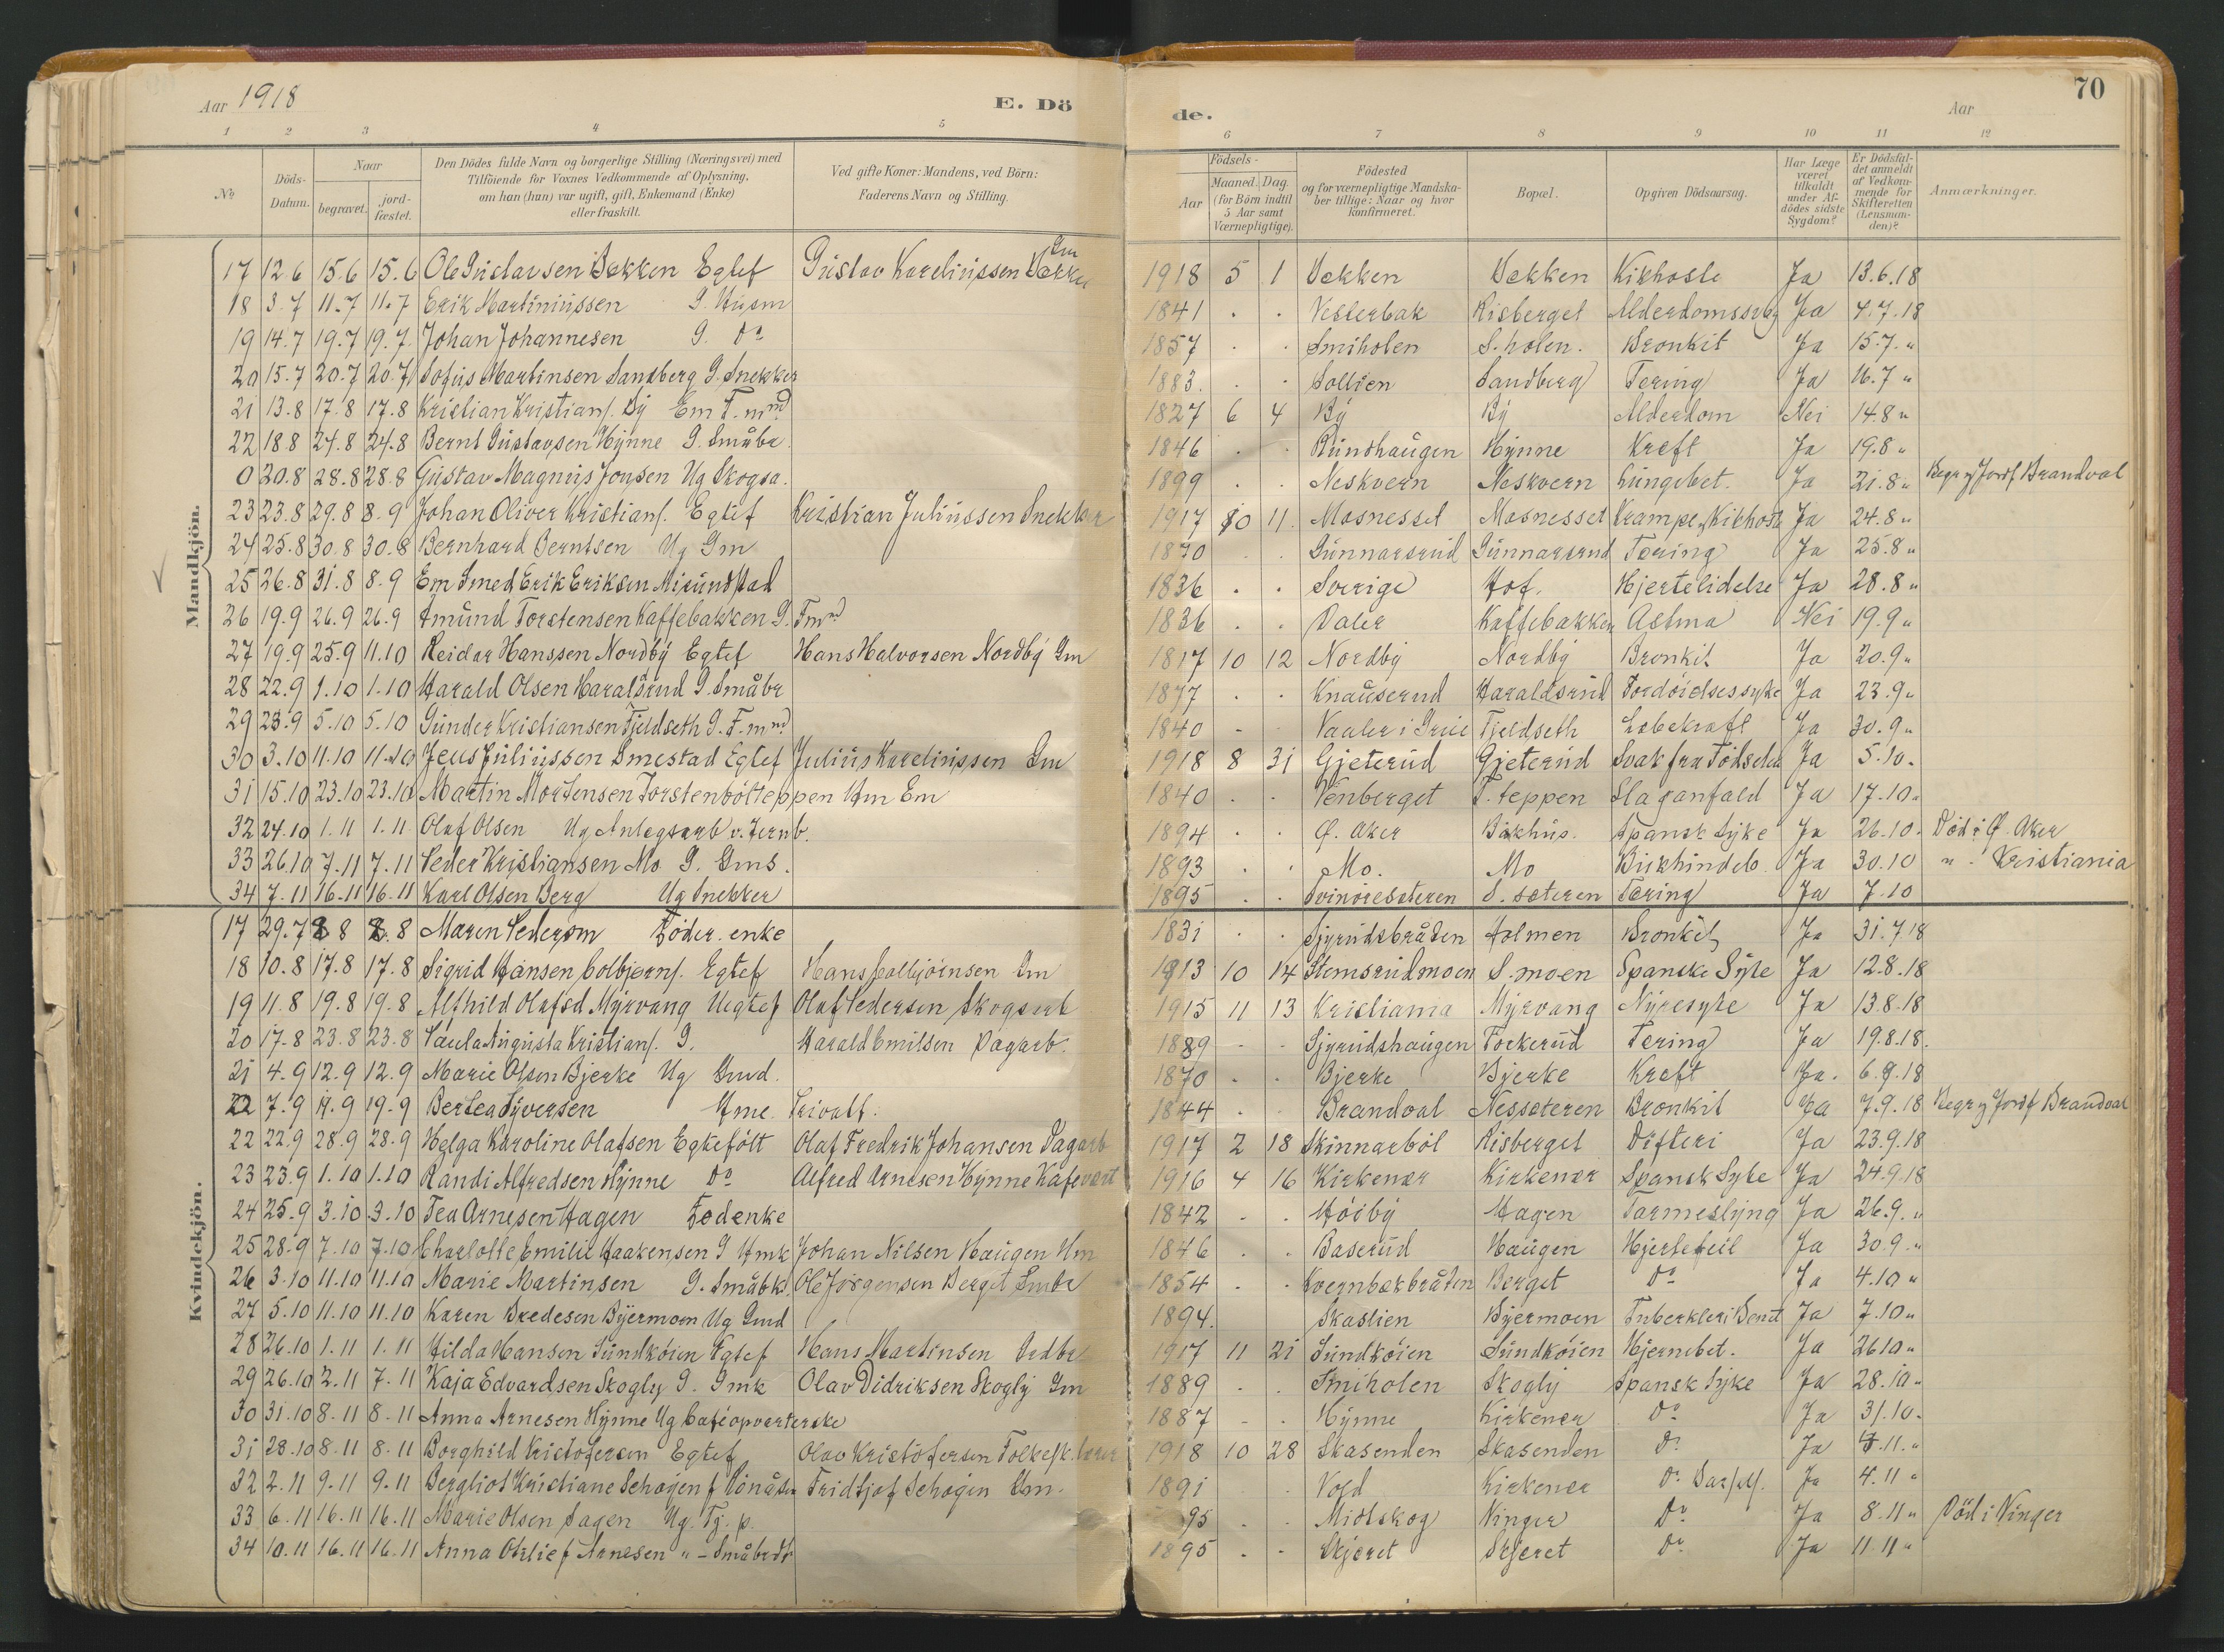 Aar 1918
E. Dö
de.
Aar
70
1 2 3 4 5 6 7 8 9 10 11 12
No
Döds-Datum.
Naar
begravet.
jord-fæstet.
Den Dödes fulde Navn og borgerlige Stilling (Næringsvei) med Tilföiende for Voxnes Vedkommende af Oplysning, om han (hun) var ugift, gift, Enkemand (Enke) eller fraskilt.
Ved gifte Koner: Mandens, ved Börn: Faderens Navn og Stilling.
Födsels-
Aar
Maaned. Dag. (for Börn indtil 5 Aar samt Værnepligtige).
Födested og for værnepligtige Mandskaber tillige: Naar og hvor konfirmeret.
Bopæl.
Opgiven Dödsaarsag.
Har Læge været tilkaldt under Afdödes sidste Sygdom?
Er Dödsfaldet anmeldt af Vedkommende for Skifteretten (Lensmanden)?
Anmærkninger.
Mandkjön.
17 12.6 15.6 15.6 Ole Gustavsen Bækken Egtef Gustav Kareliussen Bække Gm 1918 5 1 Bekken Bekken Kikhoste Ja 13.6.18
18 3.7 11.7 11.7 Erik Martiniussen G. Husm 1841 . . Vesterbak Risberget Ja 4.7.18
19 14.7 19.7 19.7 Johan Johannesen G. Do 1857 . . Smiholen S.holen. Bronkit Ja 15.7. "
20 15.7 20.7 20.7 Sofus Martinsen Sandberg G. Snekker 1883. . . Sollien Sandberg Tering Ja 16.7 "
21 13.8 17.8 17.8 Kristian Kristians. By Em F.mnd 1827 6 4 By By Alderdom Nei 14.8 "
22 18.8 24.8 24.8 Bernt Gustavsen Hynne G. Småbr. 1846 . . Rundhaugen Hynne Kreft Ja 19.8 "
0 20.8 28.8 28.8 Gustav Magnus Jonsen Ug Skogsa. 1899 . . Neskvern Neskvern Lungebet. Ja 21.8 " Begr og Jordf Brandval
23 23.8 29.8 8.9 Johan Oliver Kristians. Egtef Kristian Juliussen Snekker 1917 10 11. Mosnesset Mosnesset Krampe, Kikhost Ja 24.8 "
24 25.8 30.8 30.8 Bernhard Berntsen Ug Gm 1870 . . Gunnarsrud Gunnarsrud Tæring Ja 25.8 "
25 26.8 31.8 8.9 Em Smed Erik Eriksen Misundstad 1836 . . Sverige Hof. Hjertelidelse Ja 28.8 "
26 19.9 26.9 26.9 Amund Torstensen Kaffebakken G. Fmnd 1836 . . Valer Kaffebakken Astma Nei 19.9 "
27 19.9 25.9 11.10 Reidar Hanssen Nordby Egtef Hans Halvorsen Nordby Gm 1817 10 12 Nordby Nordby Bronkit Ja 20.9 "
28 22.9 1.10 1.10 Harald Olsen Haralsrud G. Småbr 1877 . . Knauserud Haraldsrud Fordöielsessyke Ja 23.9 "
29 23.9 5.10 5.10 Gunder Kristiansen Fjeldseth G. F.mnd 1840 - . Vaaler i Grue Fjeldseth Ja 30.9 "
30 3.10 11.10 11.10 Jens Juliussen Smestad Egtef Julius Kareliussen Gm 1918 8 31 Gjeterud Gjeterud Svak fra Födselen Ja 5.10.
31 15.10 23.10 23.10 Martin Mortensen Torstenbölteppen Hm Em 1840 . . Venberget T.teppen Slaganfald Ja 17.10.
32 24.10 1.11 1.11 Olaf Olsen Ug Anlegsarb v. Jernb. 1894 . . Ø. Aker Bakhus. Spansk Syke Ja 26.10. Död i Ø. Aker
33 26.10 7.11 7.11 Peder Kristiansen Mo G. Gms. 1893 . . Mo. Mo Bukhindeb Ja 30.10 " - Kristiania
34 7.11 16.11 16.11 Karl Olsen Berg Ug Snekker 1895 . . Svinöresæteren S.sæteren Tæring Ja 7.10
Kvindekjön.
17 29.7 8.8 8.8 Maren Pedersen Föder.enke 1831 . . Gjyrudsbråten Holmen Bronkit Ja 31.7.18
18 10.8 17.8 17.8 Sigrid Hansen Colbjørns. Egtef Hans Colbjörnsen Gm 1913 10 14 Stemsrudmoen S.moen Spanske Syke Ja 12.8.18
19 11.8 19.8 19.8 Alfhild Olafsd Myrvang Uegtef Olaf Pedersen Skogsarb 1915 11 13 Kristiania Myrvang Nyresyke Ja 13.8.18
20 17.8 23.8 23.8 Paula Augusta Kristians. G. Harald Emilsen Dagarb. 1889 - - Gjyrudshaugen Torkerud Tering Ja 19.8.18.
21 4.9 12.9 12.9 Marie Olsen Bjerke Ug Gmd. 1870 . . Bjerke Bjerke Kreft Ja. 6.9.18
22 7.9 19.9 19.9 Bertea Syversen Hme. Privatf. 1844 . . Brandval Nesseteren Bronkit Ja 7.9.18 Begr og Jordf Brandval
22 22.9 28.9 28.9 Helga Karoline Olafsen Egtefölt Olaf Fredrik Johansen Dagarb 1917 2 18 Skinnarböl Risberget Difteri Ja 23.9.18
23 23.9 1.10 1.10 Randi Alfredsen Hynne Do Alfred Arnesen Hynne Kafevært 1916 4 16 Kirkenær Kirkenær Spansk Syke Ja 24.9.18
24 25.9 3.10 3.10 Tea Arnesen Hagen Födenke 1842 - . Höiby Hagen Tarmeslyng Ja 26.9. "
25 28.9 7.10 7.10 Charlotte Emilie Haakensen G Hmk Johan Nilsen Haugen Hm 1846 . . Baserud Haugen Hjertefeil Ja 30.9 "
26 3.10 11.10 11.10 Marie Martinsen G. Småbk. Ole Jörgensen Berget Smbr 1854 . . Kvernbækbråten Berget Do Ja 4.10 "
27 5.10 11.10 11.10 Karen Bredesen Byermoen Ug Gmd 1894. Skaslien Byermoen Tuberkler i Ja 7.10 "
28 26.10 1.11 1.11 Hilda Hansen Sundköien Egtef Hans Martinsen 1917 11 21 Sundköien Sundköien Hjernebet. Ja 26.10 "
29 26.10 2.11 7.11 Kaja Edvardsen Skogly G. Gmk Olav Didriksen Skogly Gm 1889 . . Smiholen Skogly Spansk Syke Ja 28.10 "
30 31.10 8.11 8.11 Anna Arnesen Hynne Ug Caféopvarterske 1887 - . Hynne Kirkenær Do Ja 31.10.
31 28.10 8.11 8.11 Borghild Kristofersen Egtef Olav Kristofersen Folkesk.lærer 1918 10 28 Skasenden Skasenden Do Ja 4.11. "
32 2.11 9.11 9.11 Bergliot Kristiane Schøyen f Fridtjof Schøyen Gm. 1891 Vold Kirkenær Do Ja 4.11 "
33 6.11 16.11 16.11 Marie Olsen Sagen Ug. Tj.p. 95 . . Midtskog Vinger Do Ja 8.11 " Död i Vinger
34 10.11 16.11 16.11 Anna Arnesen " - Småbrdt 1895 . . Skjæret Skjeret Do Ja 11.11 "